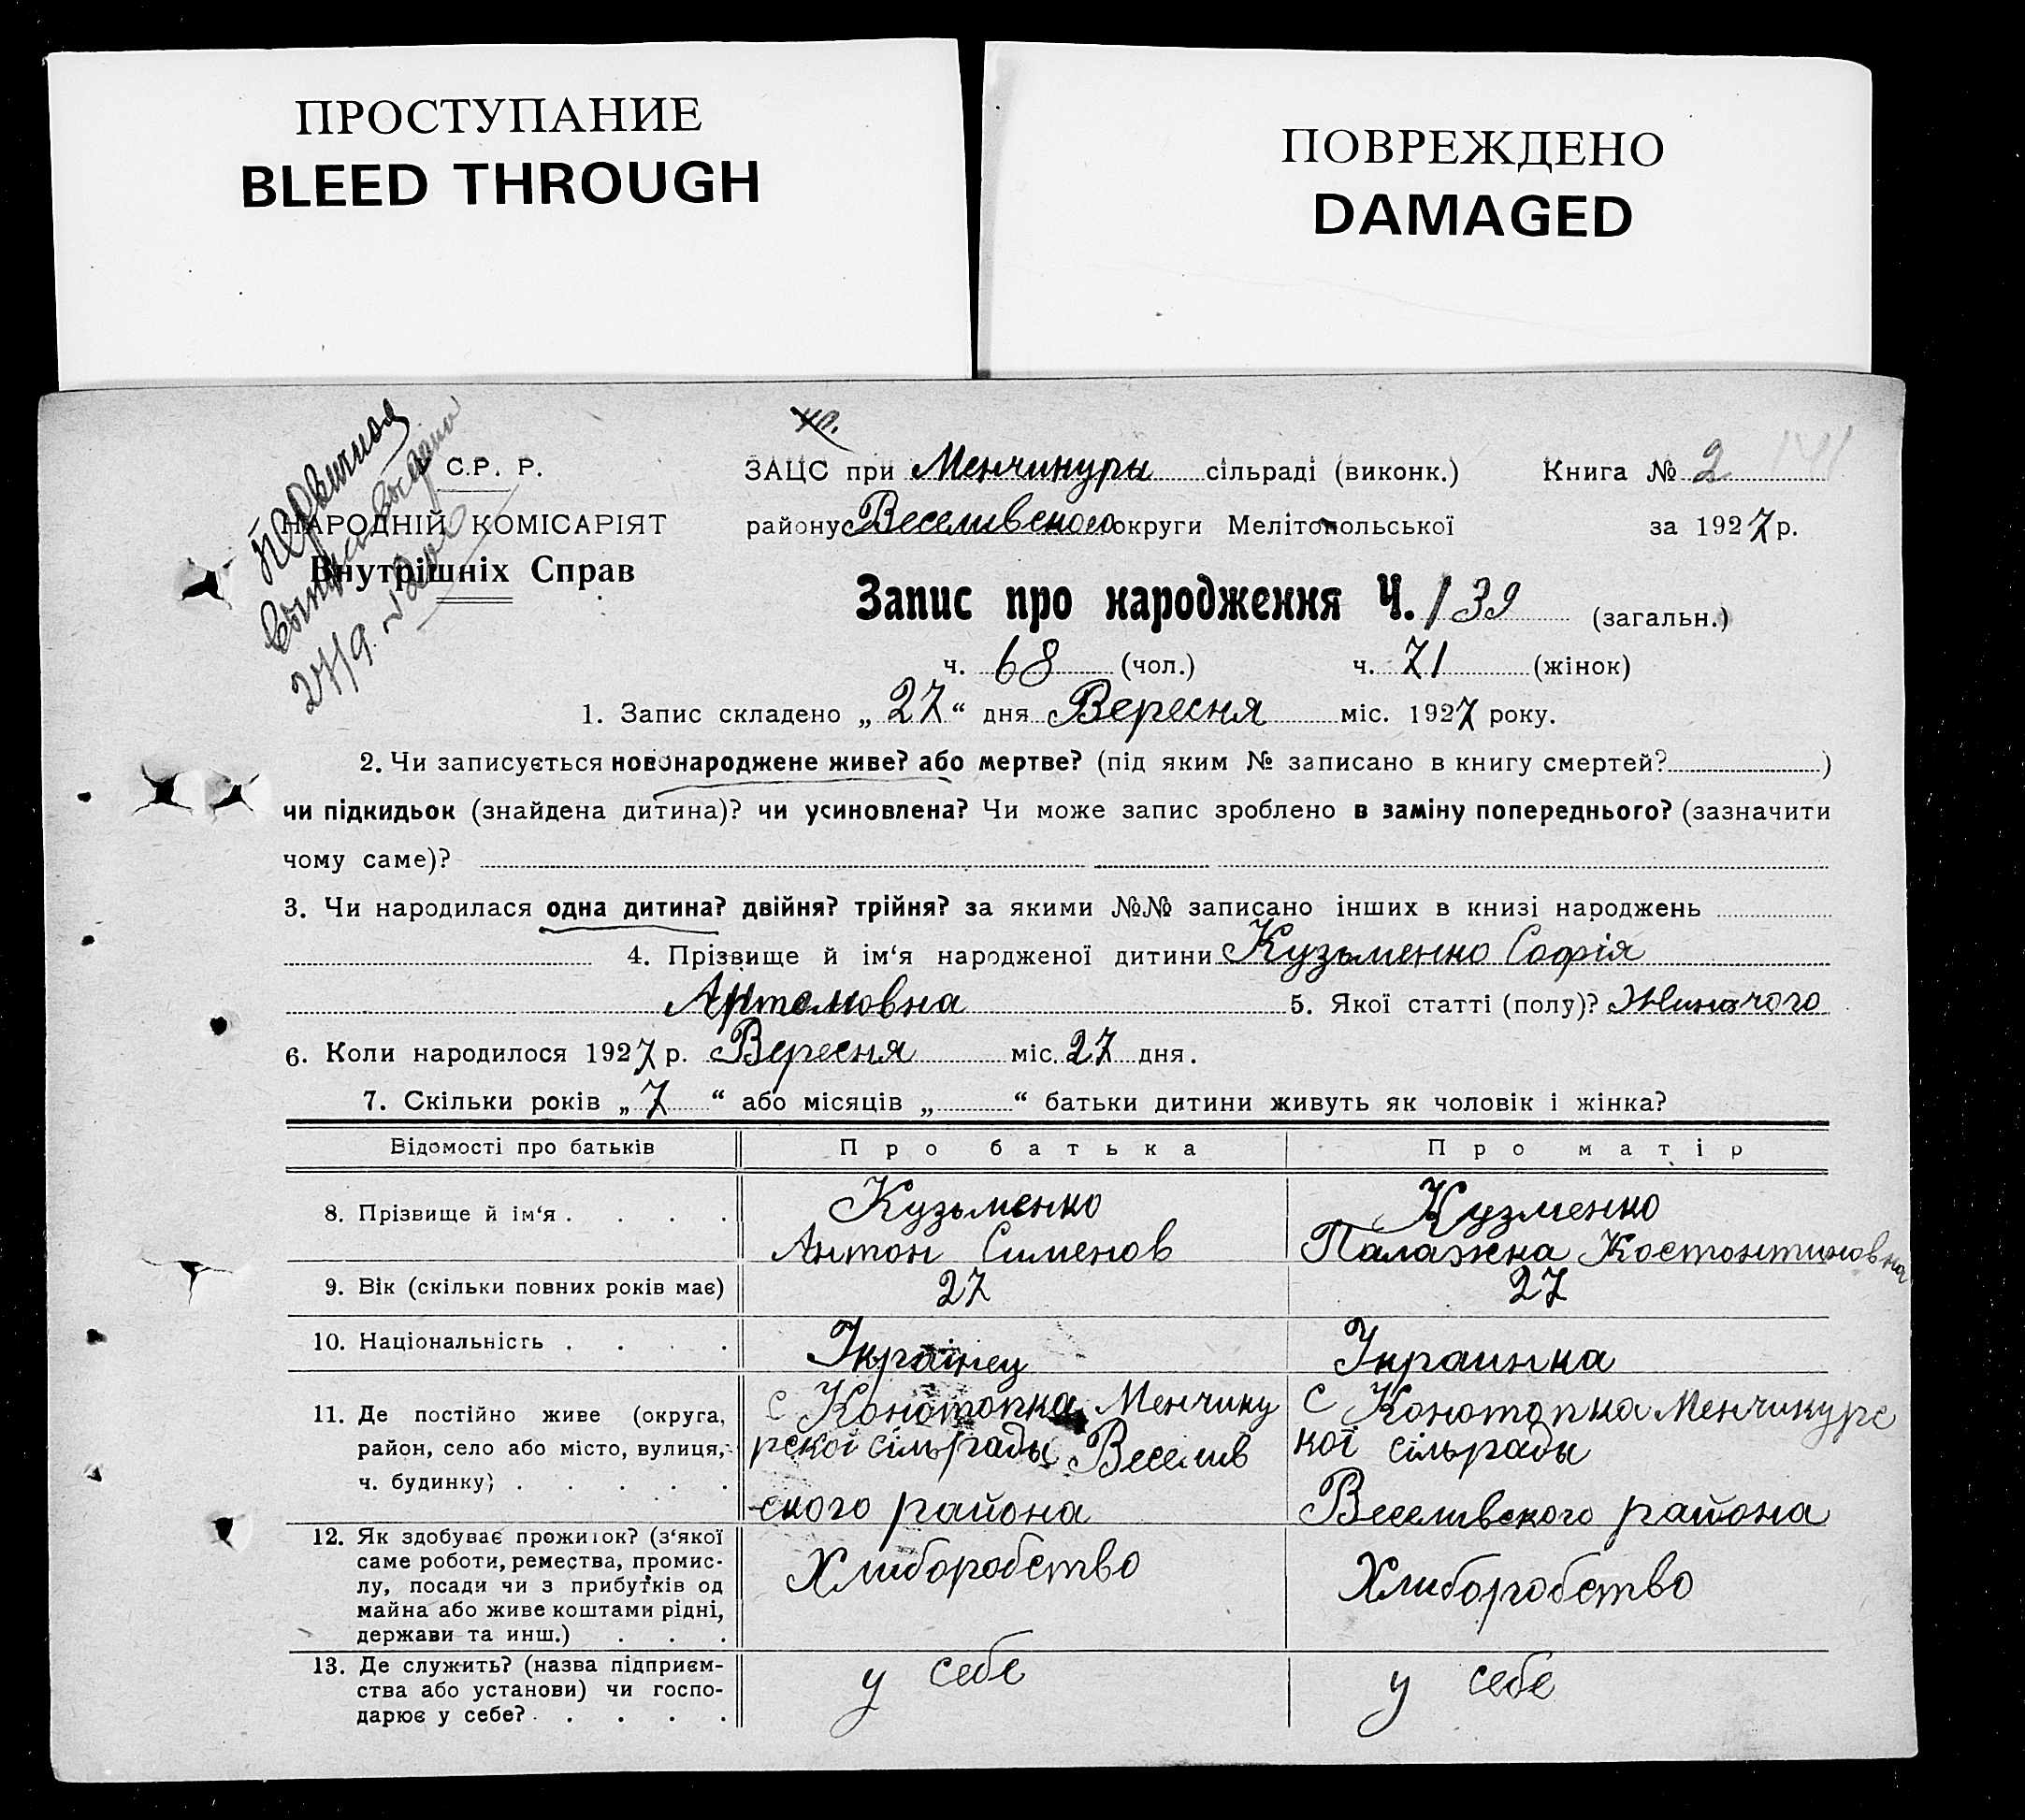 ПРОСТУПАНИЕ
BLEED THROUGH
ПОВРЕЖДЕНО
DAMAGED
С.Р. Р.
НАРОДНІЙ КОМІСАРІЯТ
Внутрішніх Справ
27/9.
ЗАЦС при Менчикуры сільраді (виконк.) Книга № 2
району Веселивского округи Мелітопольської за 1927 р.
Запис про народження Ч. 139 (загальн.)
ч. 68 (чол.) ч. 71 (жінок)
1. Запис складено „ 27 “ дня Вересня міс. 1927 року.
2. Чи записується новонароджене живе? або мертве? (під яким № записано в книгу смертей? )
чи підкидьок (знайдена дитина)? чи усиновлена? Чи може запис зроблено в заміну попереднього? (зазначити
чому саме)?
3. Чи народилася одна дитина? двійня? трійня? за якими №№ записано інших в книзі народжень
4. Прізвище й ім‘я народженої дитини Кузьменко Софія
Антоновна 5. Якої статті (полу)? Жиночого
6. Коли народилося 1927 р. Вересня міс. 27 дня.
7. Скільки років „ 7 “ або місяців „ “ батьки дитини живуть як чоловік і жінка?
Відомості про батьків Про батька Про матір
8. Прізвище й ім‘я . . . . Кузьменко Кузменко
Антон Сименов Палажка Костонтиновна
9. Вік (скільки повних років має) 27 27
10. Національність . . . . Украінец Украинка
11. Де постійно живе (округа, с Конотопка Менчику с Конотопка Менчикурс
район, село або місто, вулиця, рскоі сільрады Веселив коі сільрады
ч. будинку) . . . . . ского района Веселивского района
12. Як здобуває прожиток? (з‘якої Хлиборобство Хлиборобство
саме роботи, ремества, промис-
лу, посади чи з прибутків од
майна або живе коштами рідні,
держави та инш.) . . .
13. Де служить? (назва підприєм- у себе у себе
ства або установи) чи госпо-
дарює у себе? . . . . .